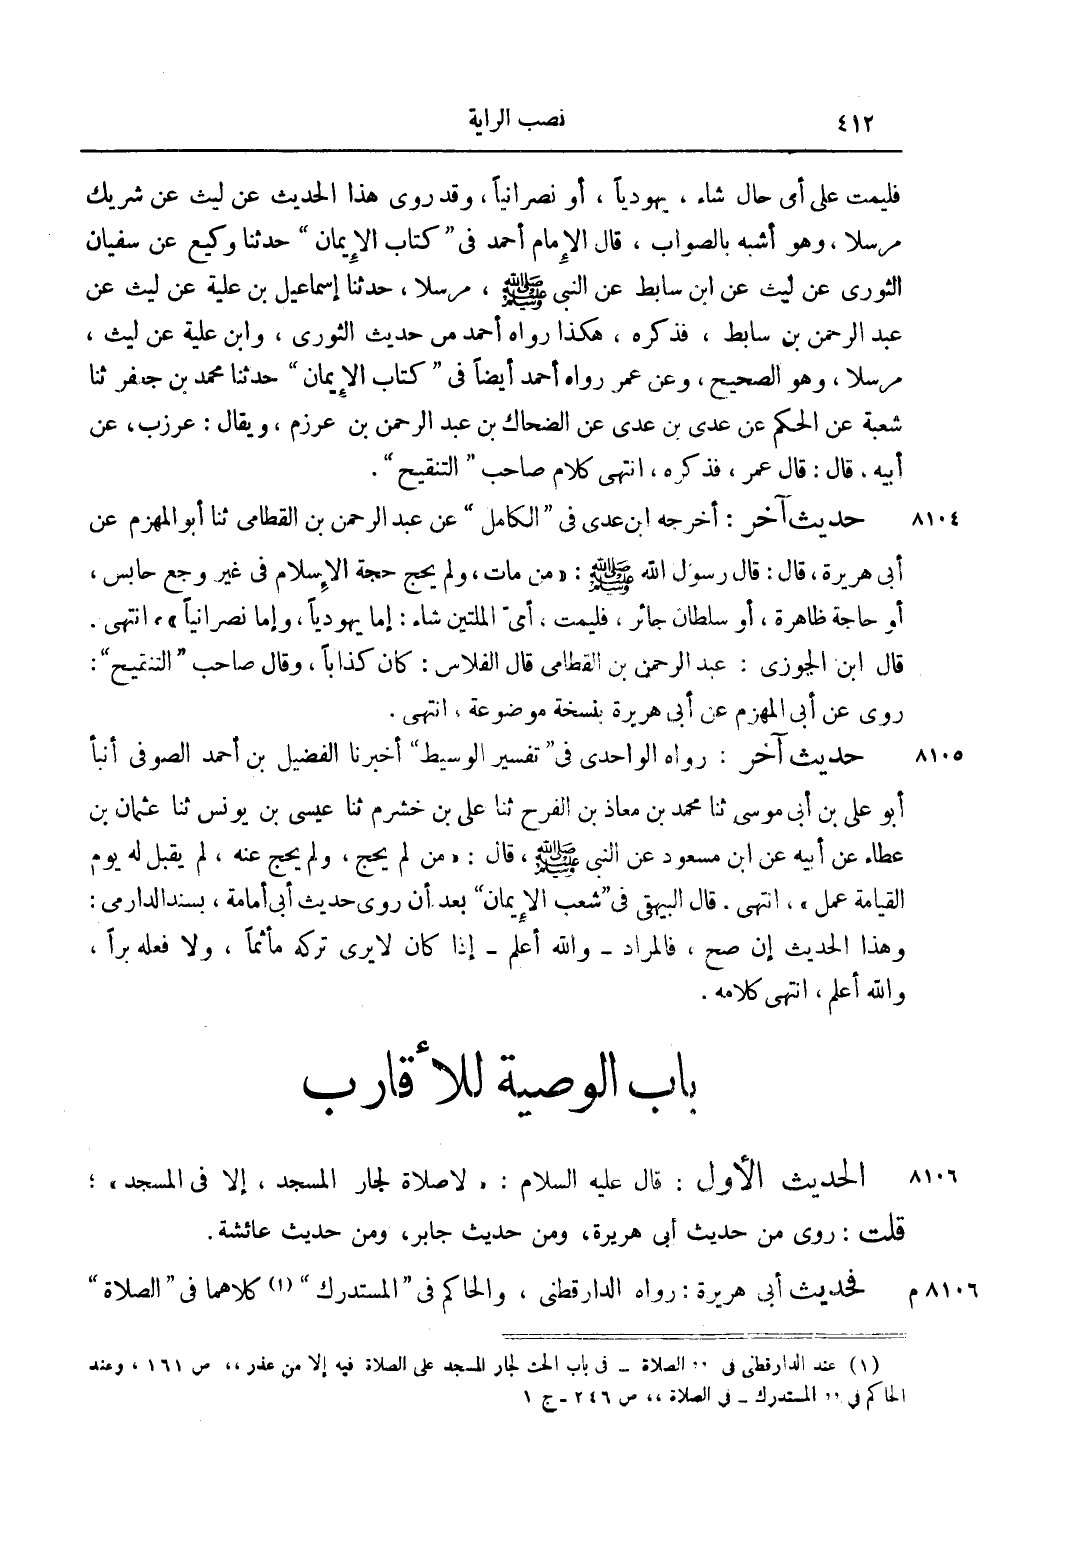 ٤١٢ نصب الراية
فليمت على أى حال شاء ، يهودياً ، أو نصرانياً ، وقد روى هذا الحديث عن ليث عن شريك
مرسلا ، وهو أشبه بالصواب ، قال الإمام أحمد فى "كتاب الإيمان" حدثنا وكيع عن سفيان
الثورى عن ليث عن ابن سابط عن النبى ﷺ ، مرسلا ، حدثنا إسماعيل بن علية عن ليث عن
عبد الرحمن بن سابط ، فذكره ، هكذا رواه أحمد من حديث الثورى ، وابن علية عن ليث ،
مرسلا ، وهو الصحيح ، وعن عمر رواه أحمد أيضاً فى "كتاب الإيمان" حدثنا محمد بن جعفر ثنا
شعبة عن الحكم عن عدى بن عدى عن الضحاك بن عبد الرحمن بن عرزم ، ويقال : عرزب ، عن
أبيه . قال : قال عمر ، فذكره ، انتهى كلام صاحب "التنقيح" .
٨١٠٤ حديث آخر : أخرجه ابن عدى فى "الكامل" عن عبد الرحمن بن القطامى ثنا أبو المهزم عن
أبى هريرة ، قال : قال رسول الله ﷺ : « من مات ، ولم يحج حجة الإسلام فى غير وجع حابس ،
أو حاجة ظاهرة ، أو سلطان جائر ، فليمت ، أىّ الملتين شاء : إما يهودياً ، وإما نصرانياً » ، انتهى .
قال ابن الجوزى : عبد الرحمن بن القطامى قال الفلاس : كان كذاباً ، وقال صاحب "التنقيح" :
روى عن أبى المهزم عن أبى هريرة بنسخة موضوعة ، انتهى .
٨١٠٥ حديث آخر : رواه الواحدى فى "تفسير الوسيط" أخبرنا الفضيل بن أحمد الصوفى أنبأ
أبو على بن أبى موسى ثنا محمد بن معاذ بن الفرح ثنا على بن خشرم ثنا عيسى بن يونس ثنا عثمان بن
عطاء عن أبيه عن ابن مسعود عن النبى ﷺ ، قال : « من لم يحج ، ولم يحج عنه ، لم يقبل له يوم
القيامة عمل » ، انتهى . قال البيهقى فى "شعب الإيمان" بعد أن روى حديث أبى أمامة ، بسند الدارمى :
وهذا الحديث إن صح ، فالمراد – والله أعلم – إذا كان لايرى تركه مأثماً ، ولا فعله براً ،
والله أعلم ، انتهى كلامه .
باب الوصية للأقارب
٨١٠٦ الحديث الأول : قال عليه السلام : « لاصلاة لجار المسجد ، إلا فى المسجد » ؛
قلت : روى من حديث أبى هريرة، ومن حديث جابر، ومن حديث عائشة .
٨١٠٦ م فحديث أبى هريرة : رواه الدارقطنى ، والحاكم فى "المستدرك" (١) كلاهما فى "الصلاة"
(١) عند الدارقطنى فى ,, الصلاة – فى باب الحث لجار المسجد على الصلاة فيه إلا من عذر ،، ص ١٦١ ، وعند
الحاكم فى ,, المستدرك – فى الصلاة ،، ص ٢٤٦ – ج ١